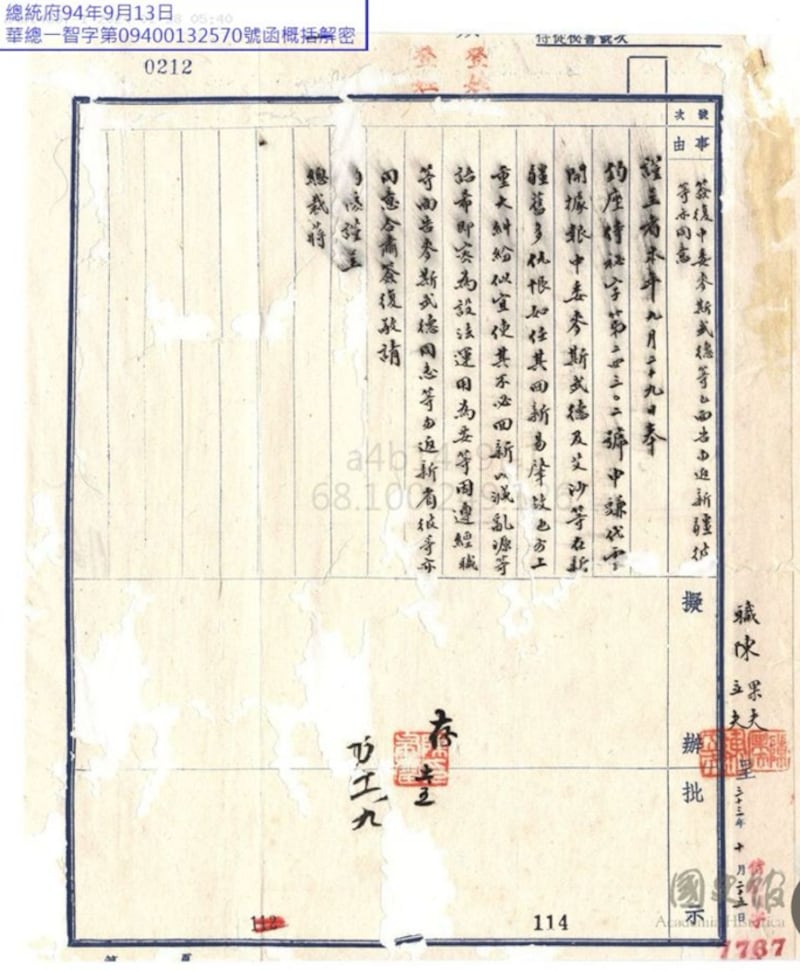 總統府94年9月13日
華總一智字第09400132570號函概括解密
0212
次號
事由
簽復中委麥斯武德等已面告勿返新疆彼
等亦同意
謹呈者本年九月二十九日奉
鈞座侍秘字第二四三〇二號申謙代電
開據報中委麥斯武德及艾沙等在新
疆舊多仇恨如任其回新易肇致地方上
重大糾紛似宜使其不必回新以減亂源等
語希即密為設法運用為妥等因遵經職
等面告麥斯武德同志等勿返新省彼等亦
同意合肅簽復敬請
謹呈
總裁蔣
擬辦
批示
職陳果夫
立夫
呈
三十三年十月二十五日
存
112
114
國史館
Academia Historica
1767